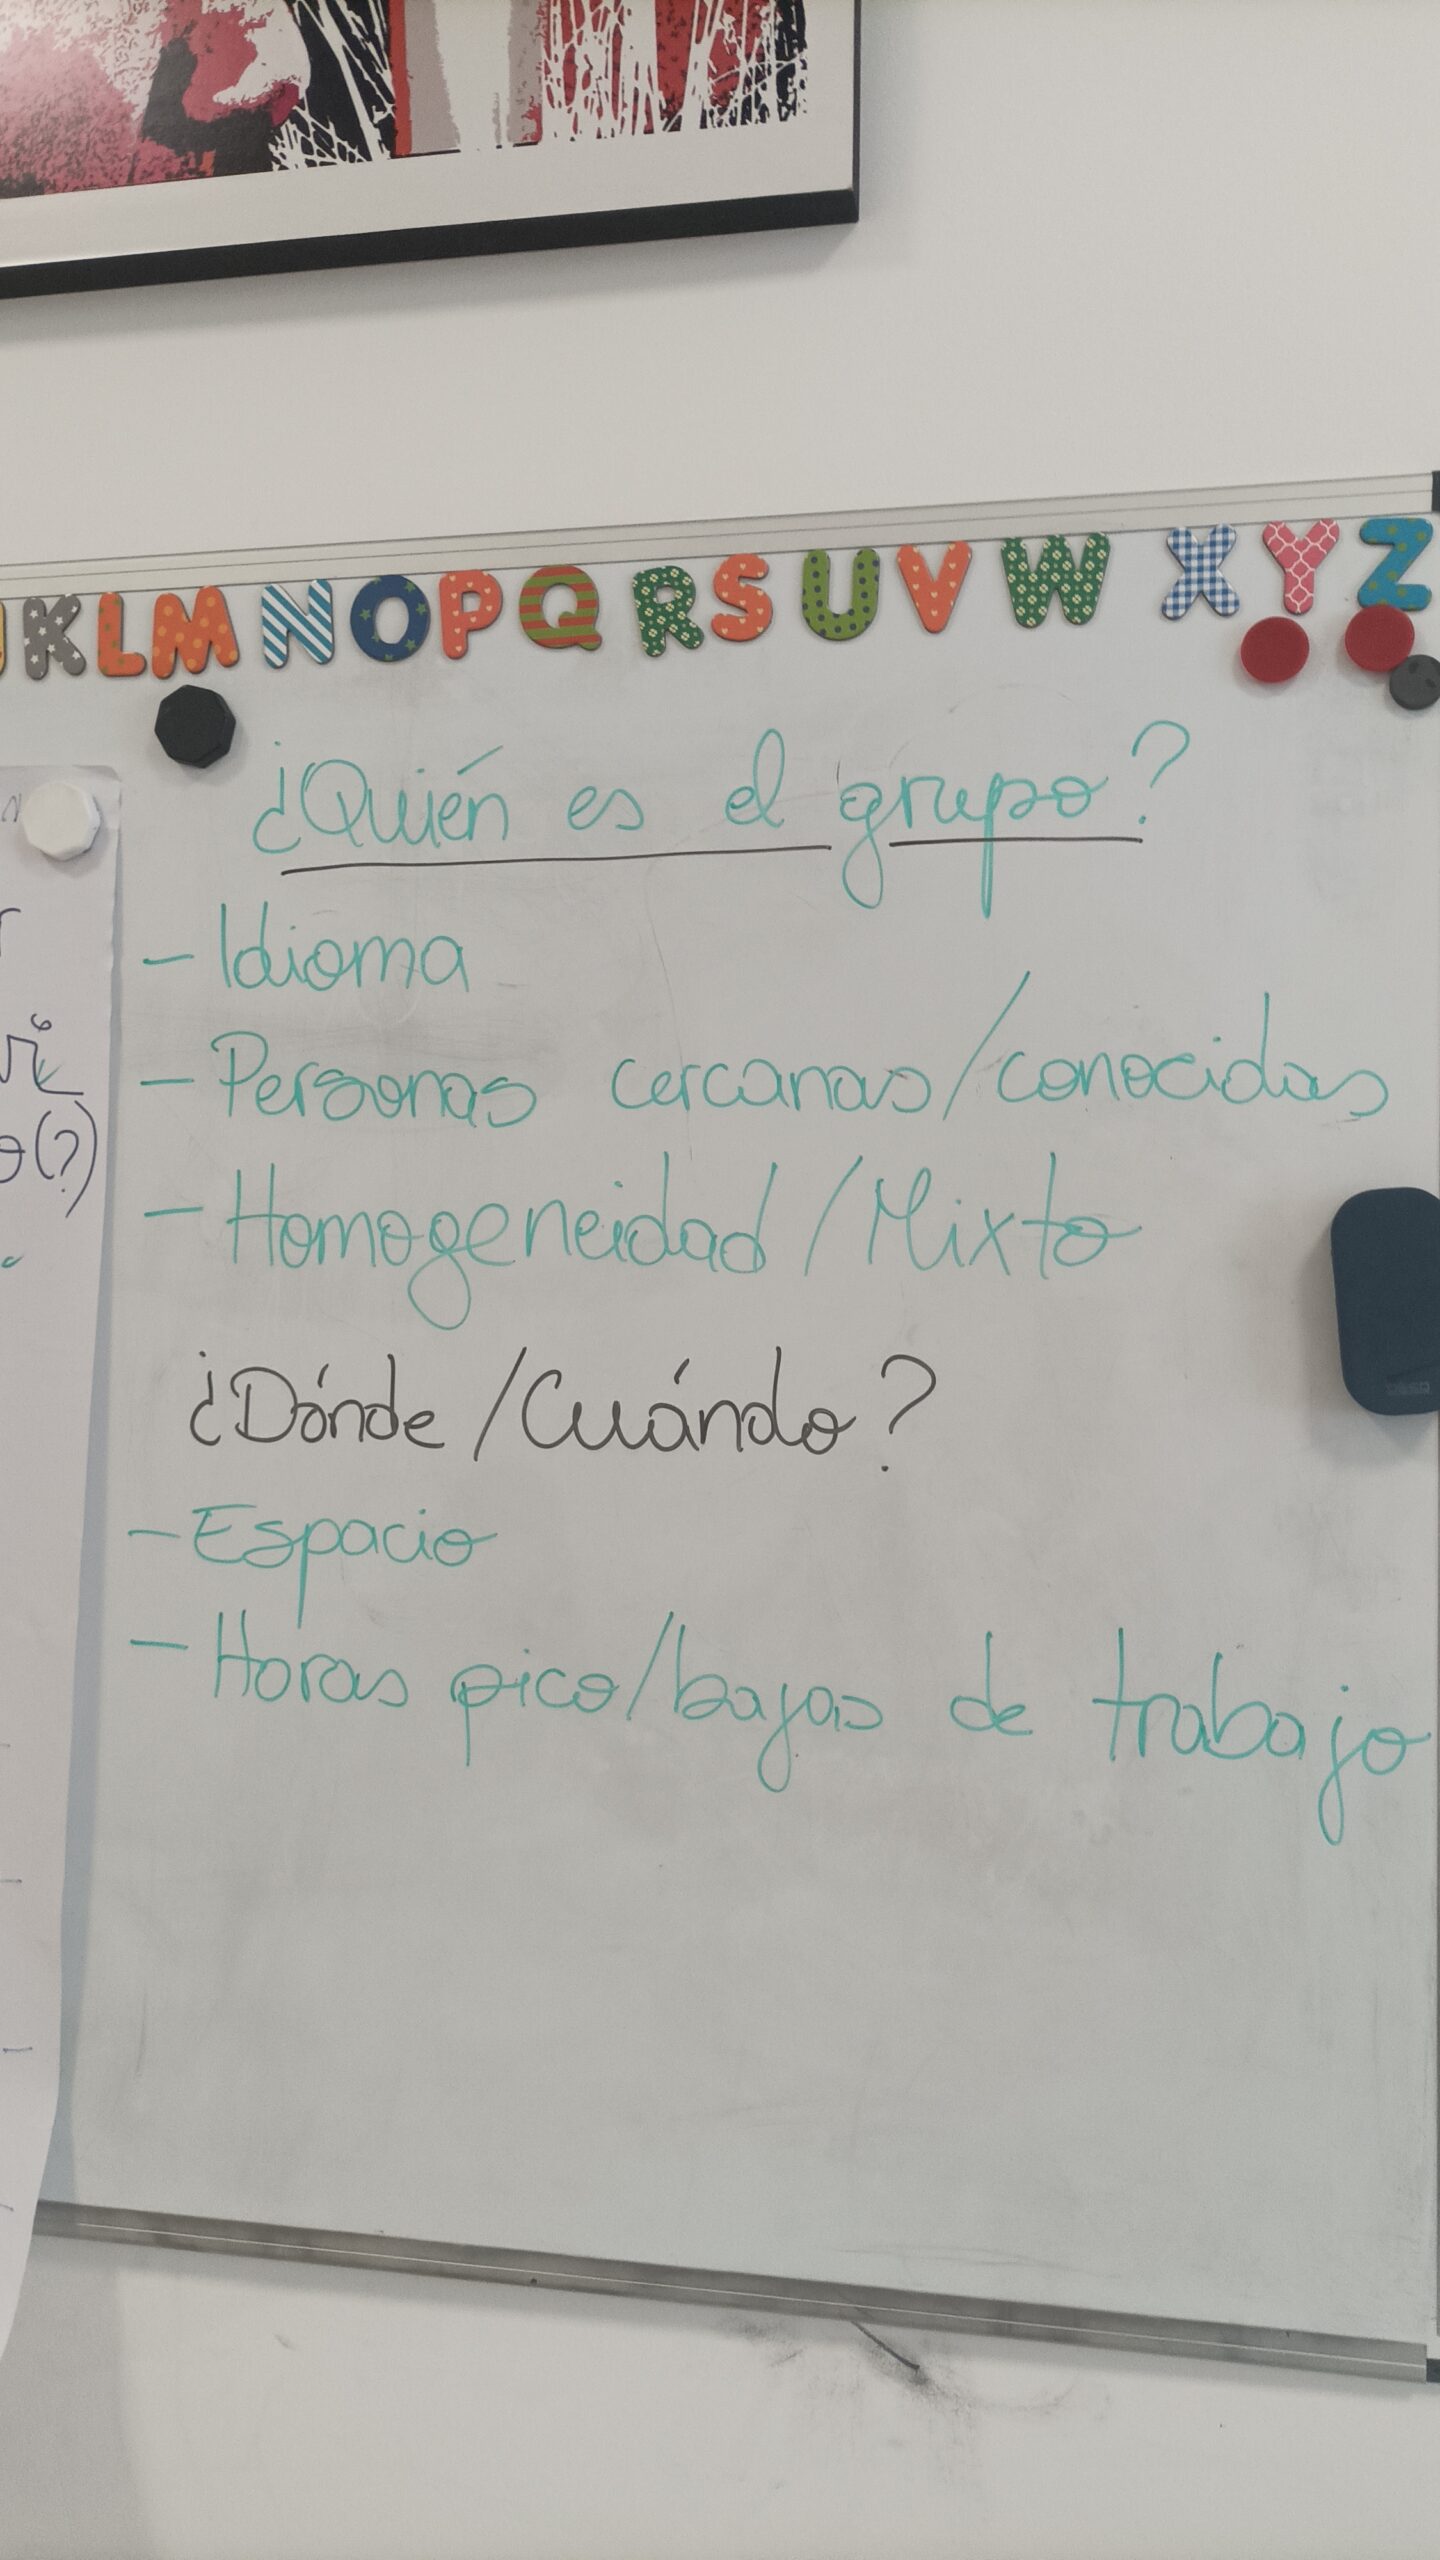 K L M N O P Q R S U V W X Y Z
¿Quién es el grupo?
- Idioma
- Personas cercanas/conocidas
- Homogeneidad/Mixto
¿Dónde/Cuándo?
- Espacio
- Horas pico/bajas de trabajo
(?)